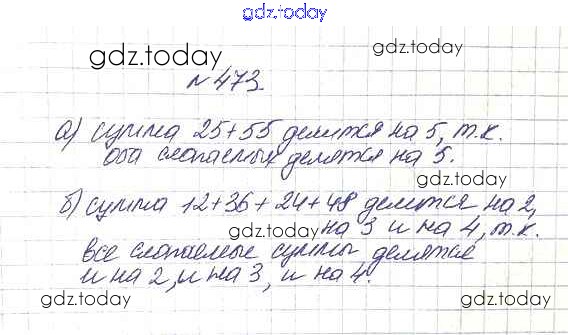 gdz.today
gdz.today
gdz.today
№ 473.
а) сумма 25+55 делится на 5, т.к.
оба слагаемых делятся на 5.
gdz.today
б) сумма 12+36+24+48 делится на 2,
gdz.today на 3 и на 4, т.к.
все слагаемые суммы делятся
и на 2, и на 3, и на 4.
gdz.today
gdz.today